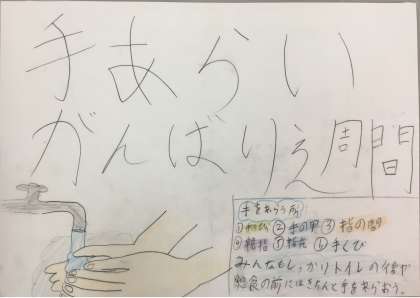 手あらい
がんばり週間
手をあらう所
②手の甲 ③指の間
⑥手くび
みんなもしっかりトイレの後や
給食の前にはきちんと手を洗おう。